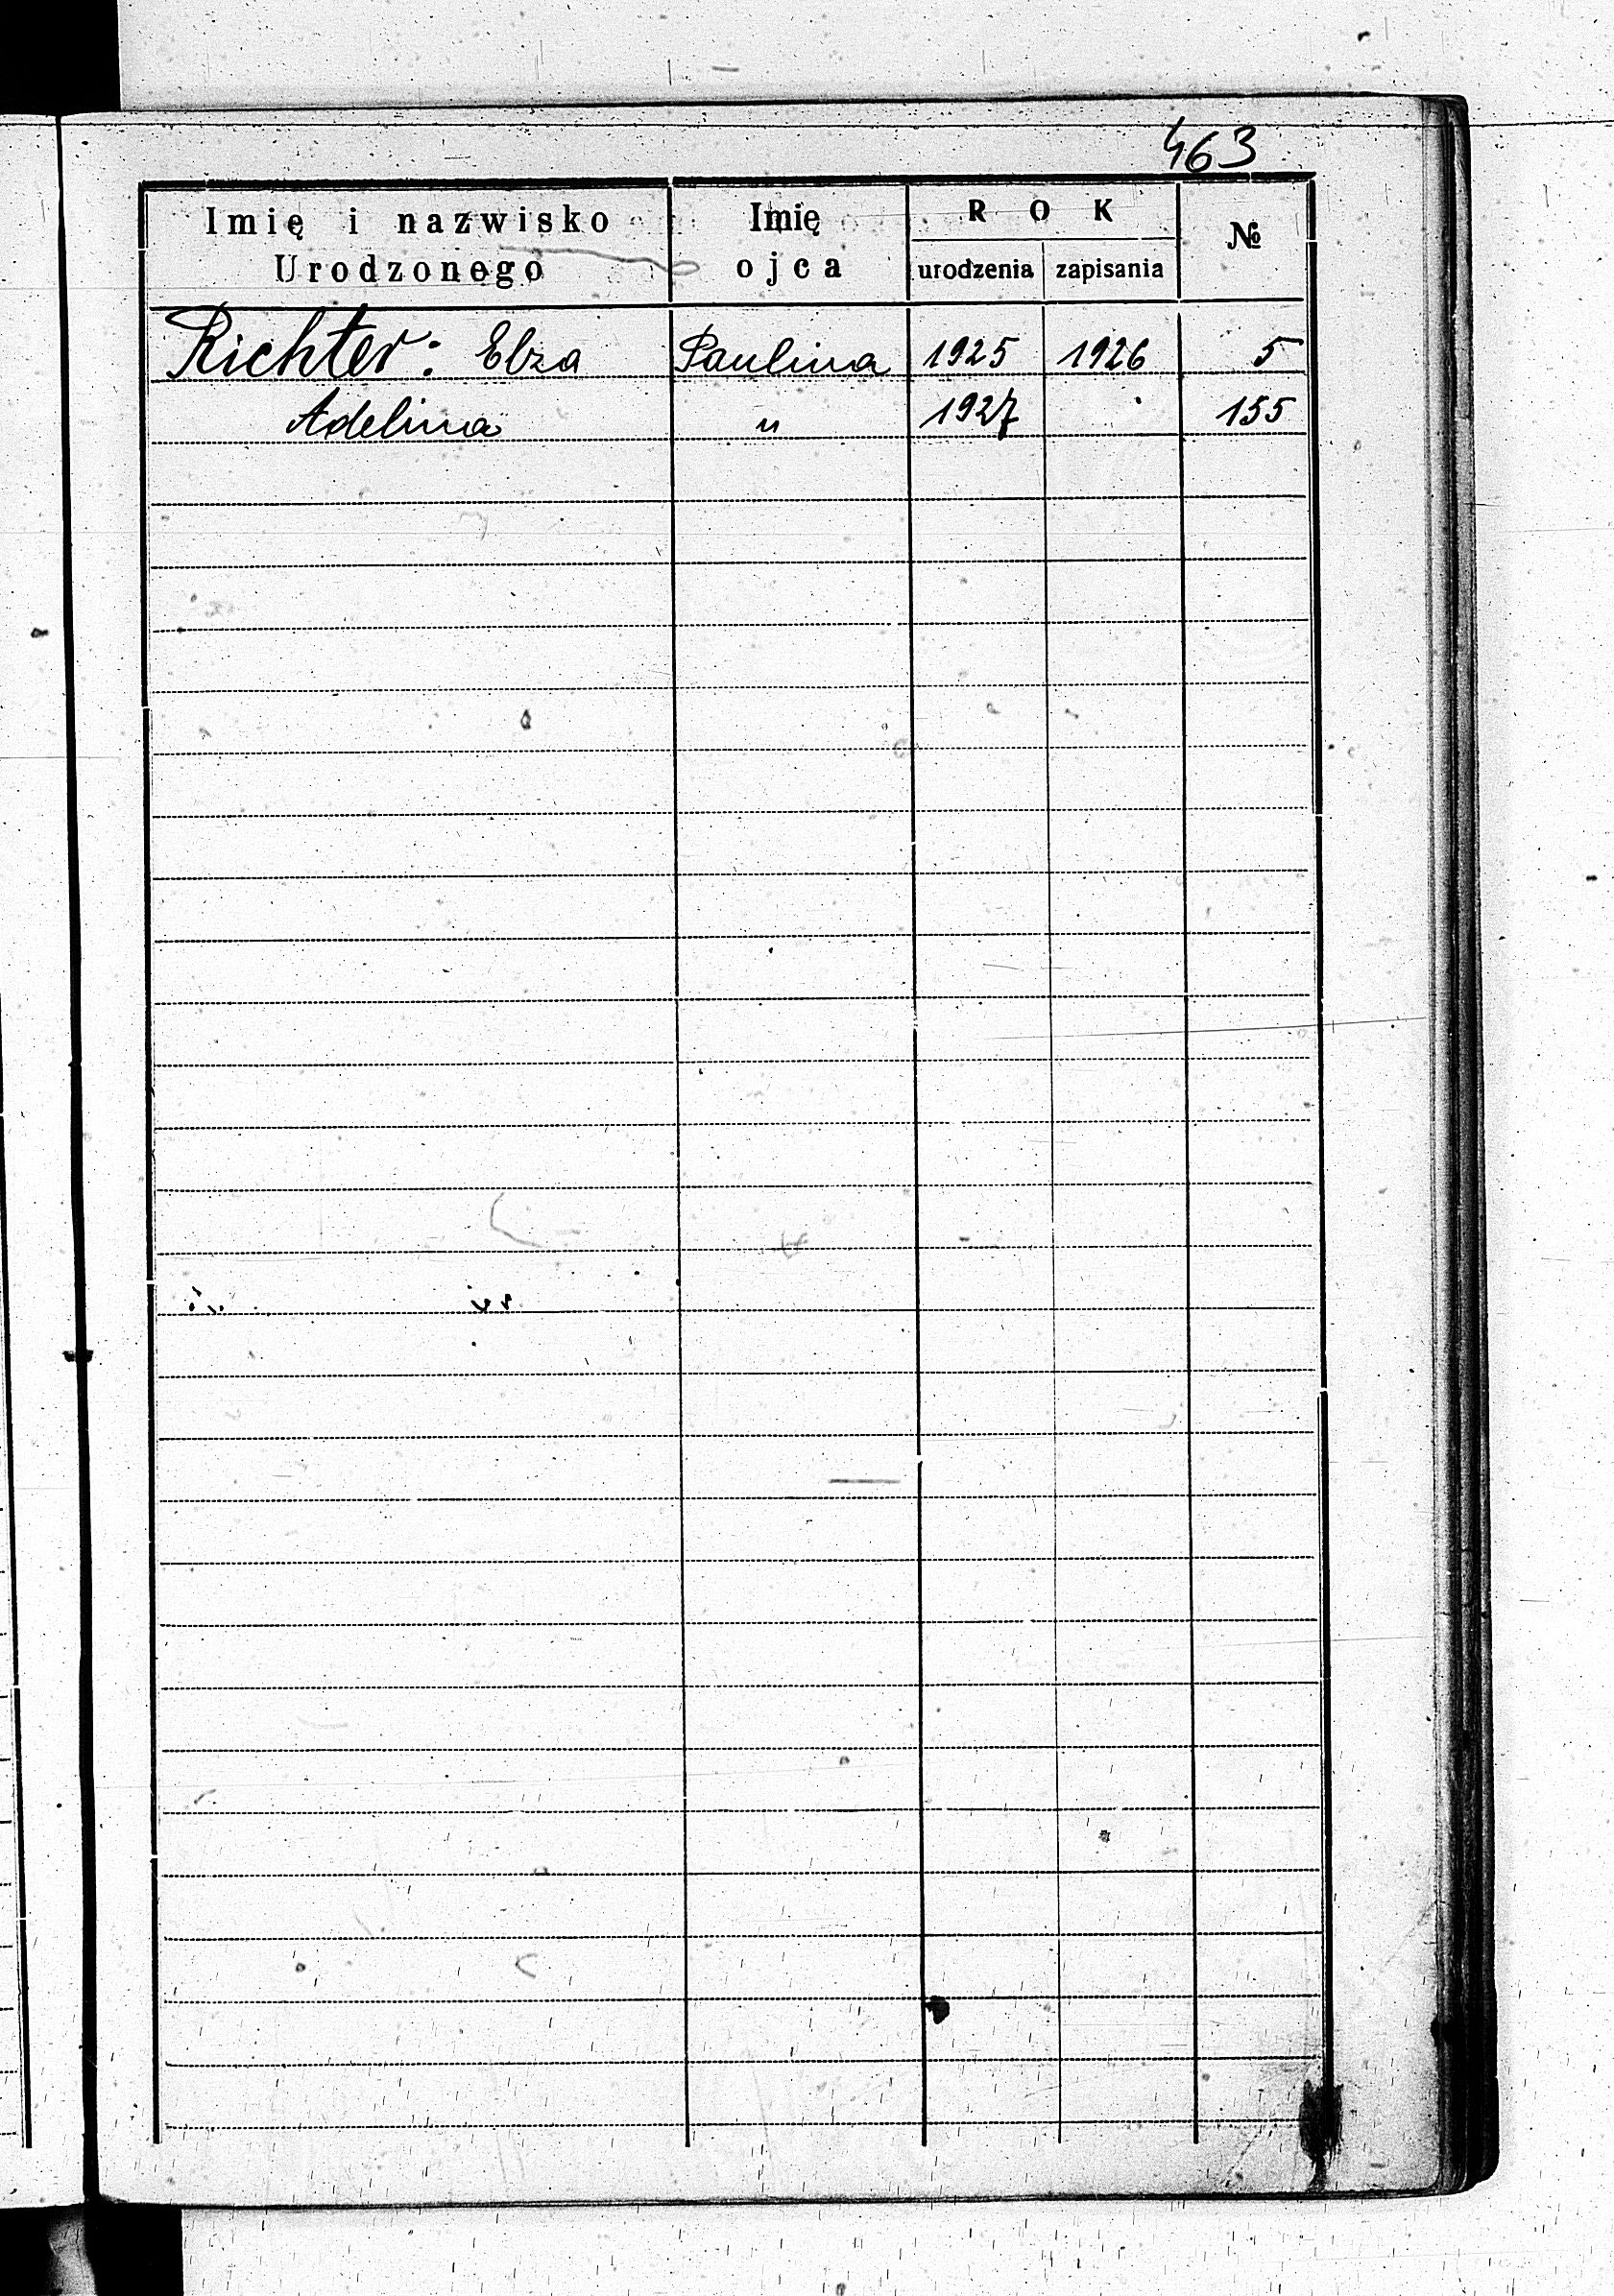 463
Imię i nazwisko Urodzonego
Imię ojca
ROK
urodzenia zapisania
№
Richter: Elza Paulina 1925 1926 5
Adelina " 1927 155